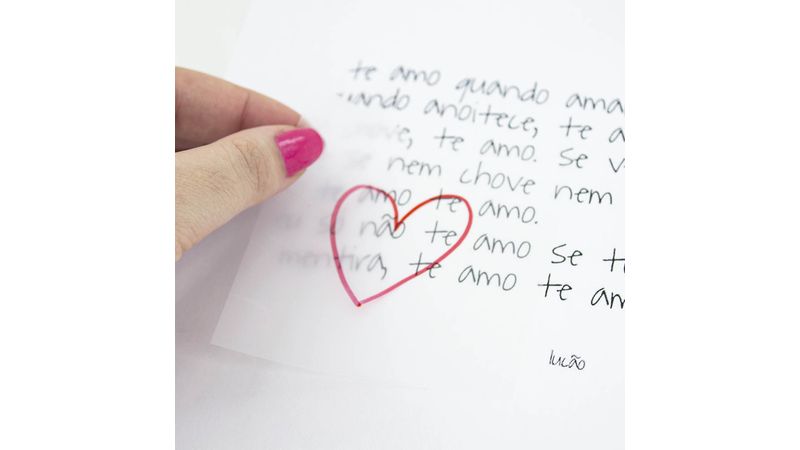 te amo quando ama
uando anoitece, te a
chove, te amo. se v
se nem chove nem
te amo te amo.
eu só não te amo se te
mentira, te amo te am
lucão